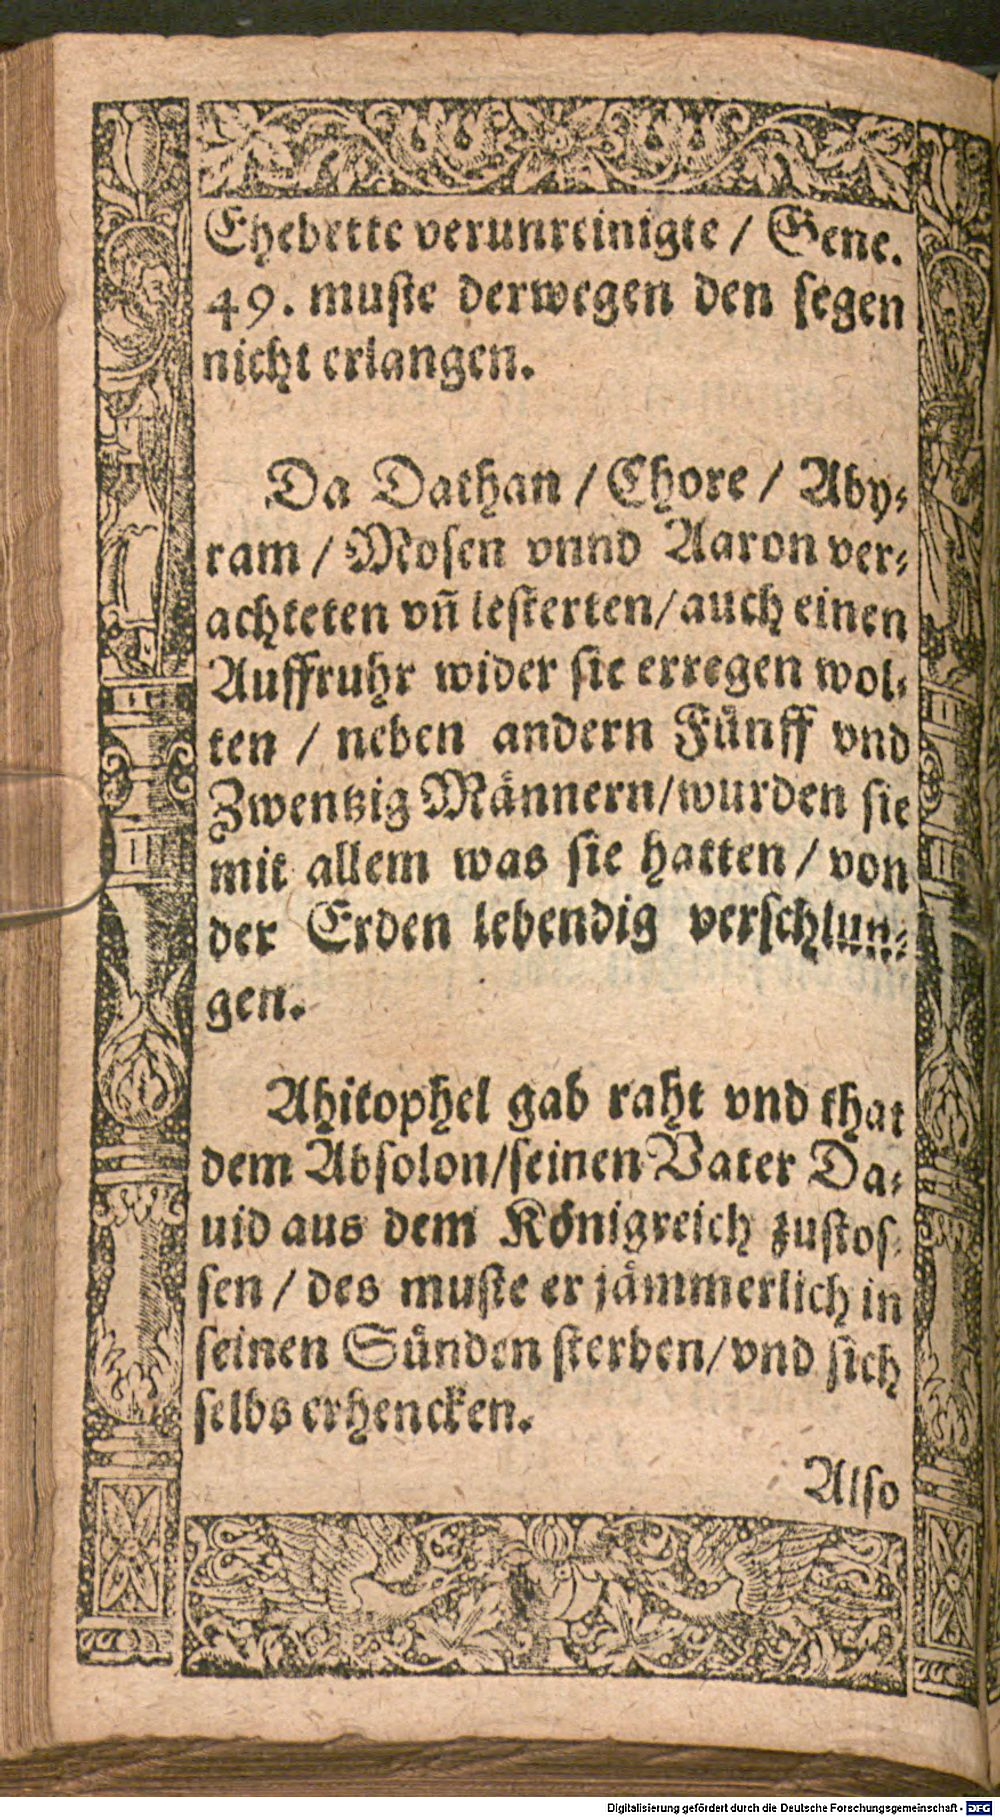 Ehebette verunreinigte / Gene.
49. muſte derwegen den ſegen
nicht erlangen.
Da Dathan / Chore / Aby⸗
ram / Moſen vnnd Aaron ver⸗
achteten vñ leſterten / auch einen
Auffruhr wider ſie erregen wol⸗
ten / neben andern Fünff vnd
Zwentzig Männern / wurden ſie
mit allem was ſie hatten / von
der Erden lebendig verſchlun⸗
gen.
Ahitophel gab raht vnd that
dem Abſolon / ſeinen Vater Da⸗
uid aus dem Königreich zuſtoſ⸗
ſen / des muſte er jämmerlich in
ſeinen Sünden ſterben / vnd ſich
ſelbs erhencken.
Alſo
Digitalisierung gefördert durch die Deutsche Forschungsgemeinschaft - DFG